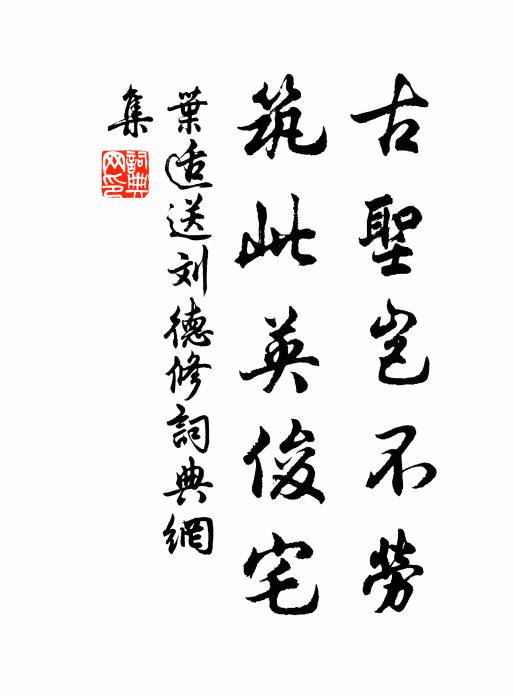 古聖豈不勞
筑此英俊宅
葉适送刘德修詞典網
集
詞典網印